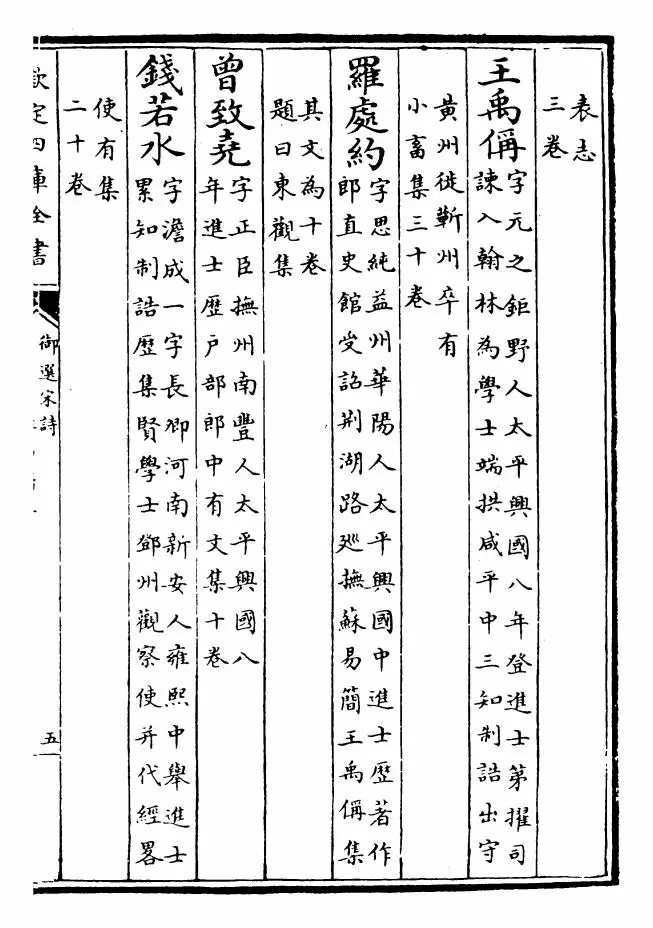 表志
三巻
王禹偁字元之鉅野人太平興國八年登進士第擢司
諫入翰林為學士端拱咸平中三知制誥出守
黄州徙蘄州卒有
小畜集三十巻
羅處約字思純益州華陽人太平興國中進士歴著作
郎直史館受詔荆湖路廵撫蘇易簡王禹偁集
其文為十巻
題曰東觀集
曾致堯字正臣撫州南豐人太平興國八
年進士歴户部郎中有文集十巻
錢若水字澹成一字長卿河南新安人雍熙中舉進士
累知制誥歴集賢學士鄧州觀察使并代經畧
使有集
二十巻
欽定四庫全書
御選宋詩
五